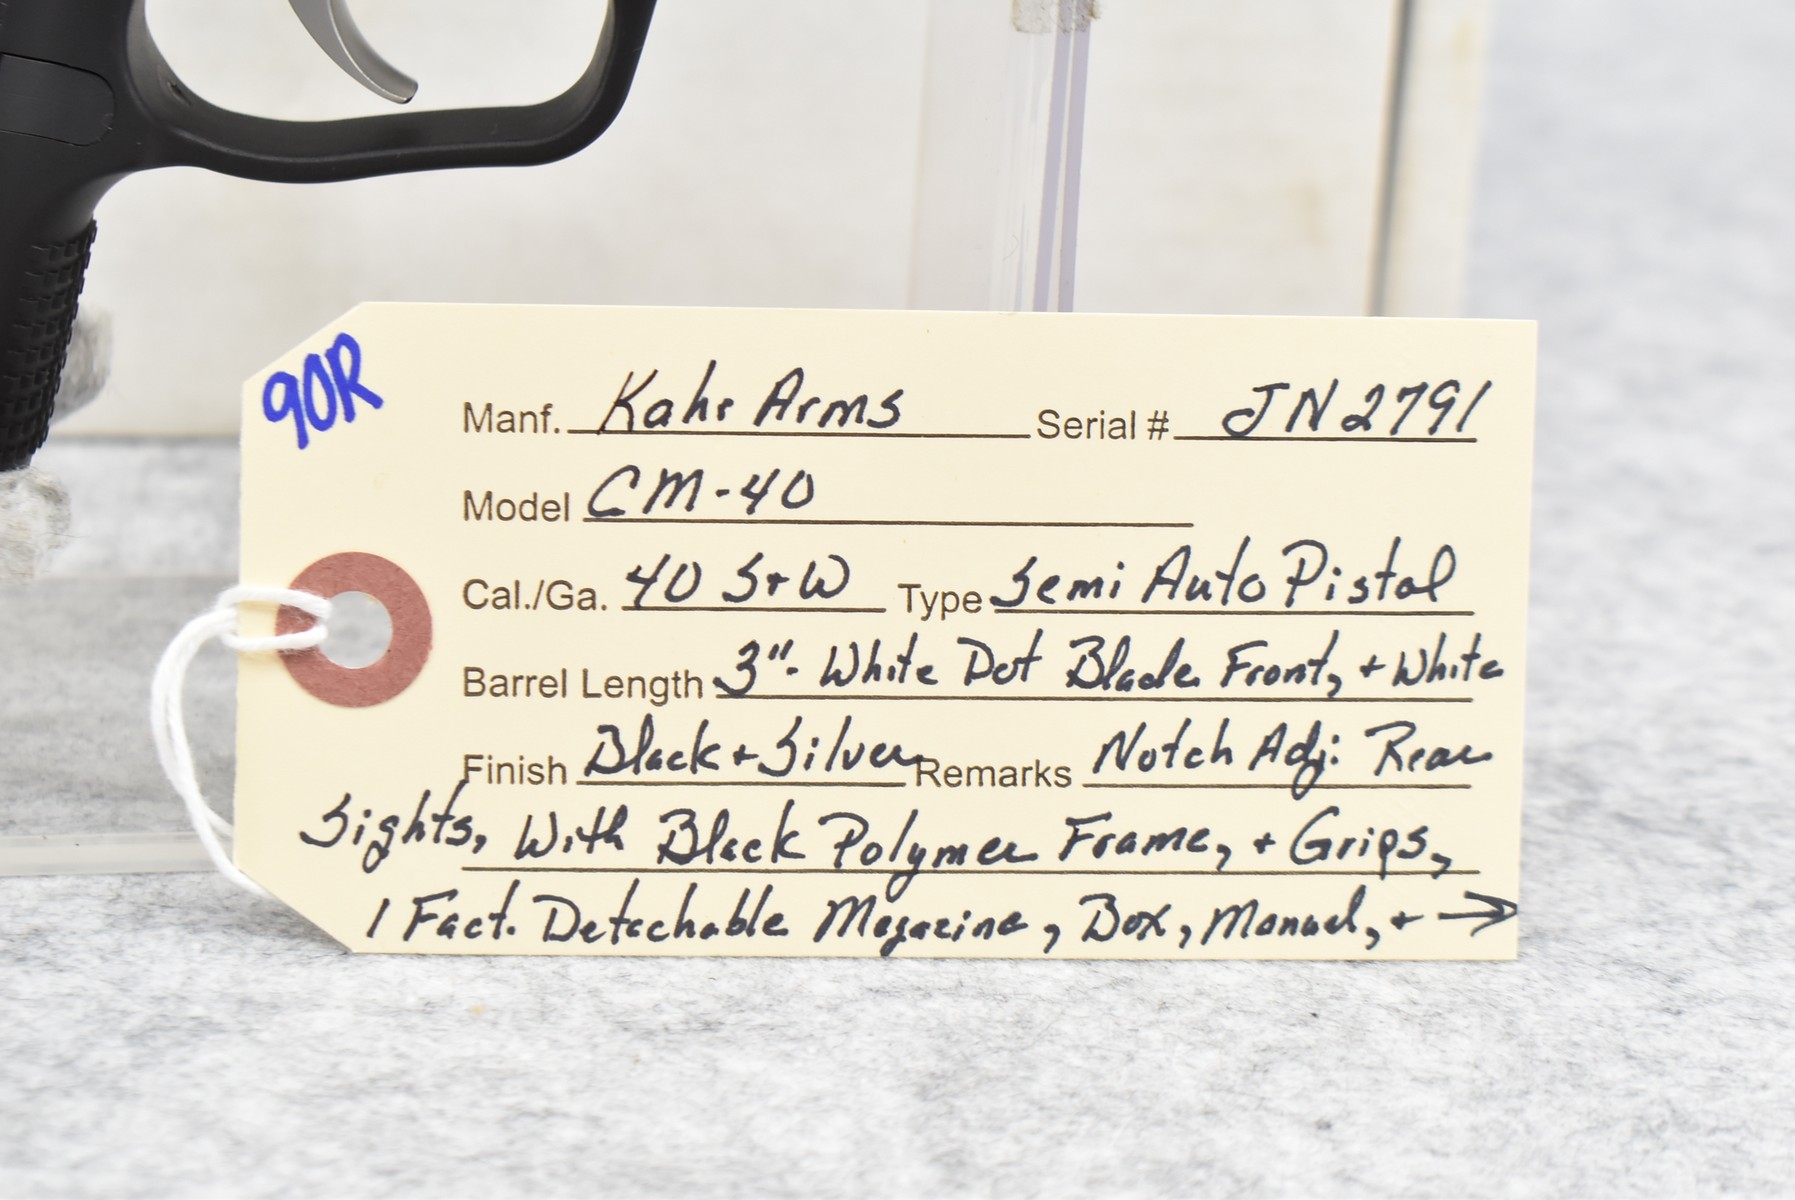 90R
Manf. Kahr Arms Serial # JN2791
Model CM-40
Cal./Ga. 40 S+W Type Semi Auto Pistol
Barrel Length 3"- White Dot Blade Front, + White
Finish Black + Silver Remarks Notch Adj. Rear
Sights, With Black Polymer Frame, + Grips,
1 Fact. Detachable Magazine, Box, Manual, + →